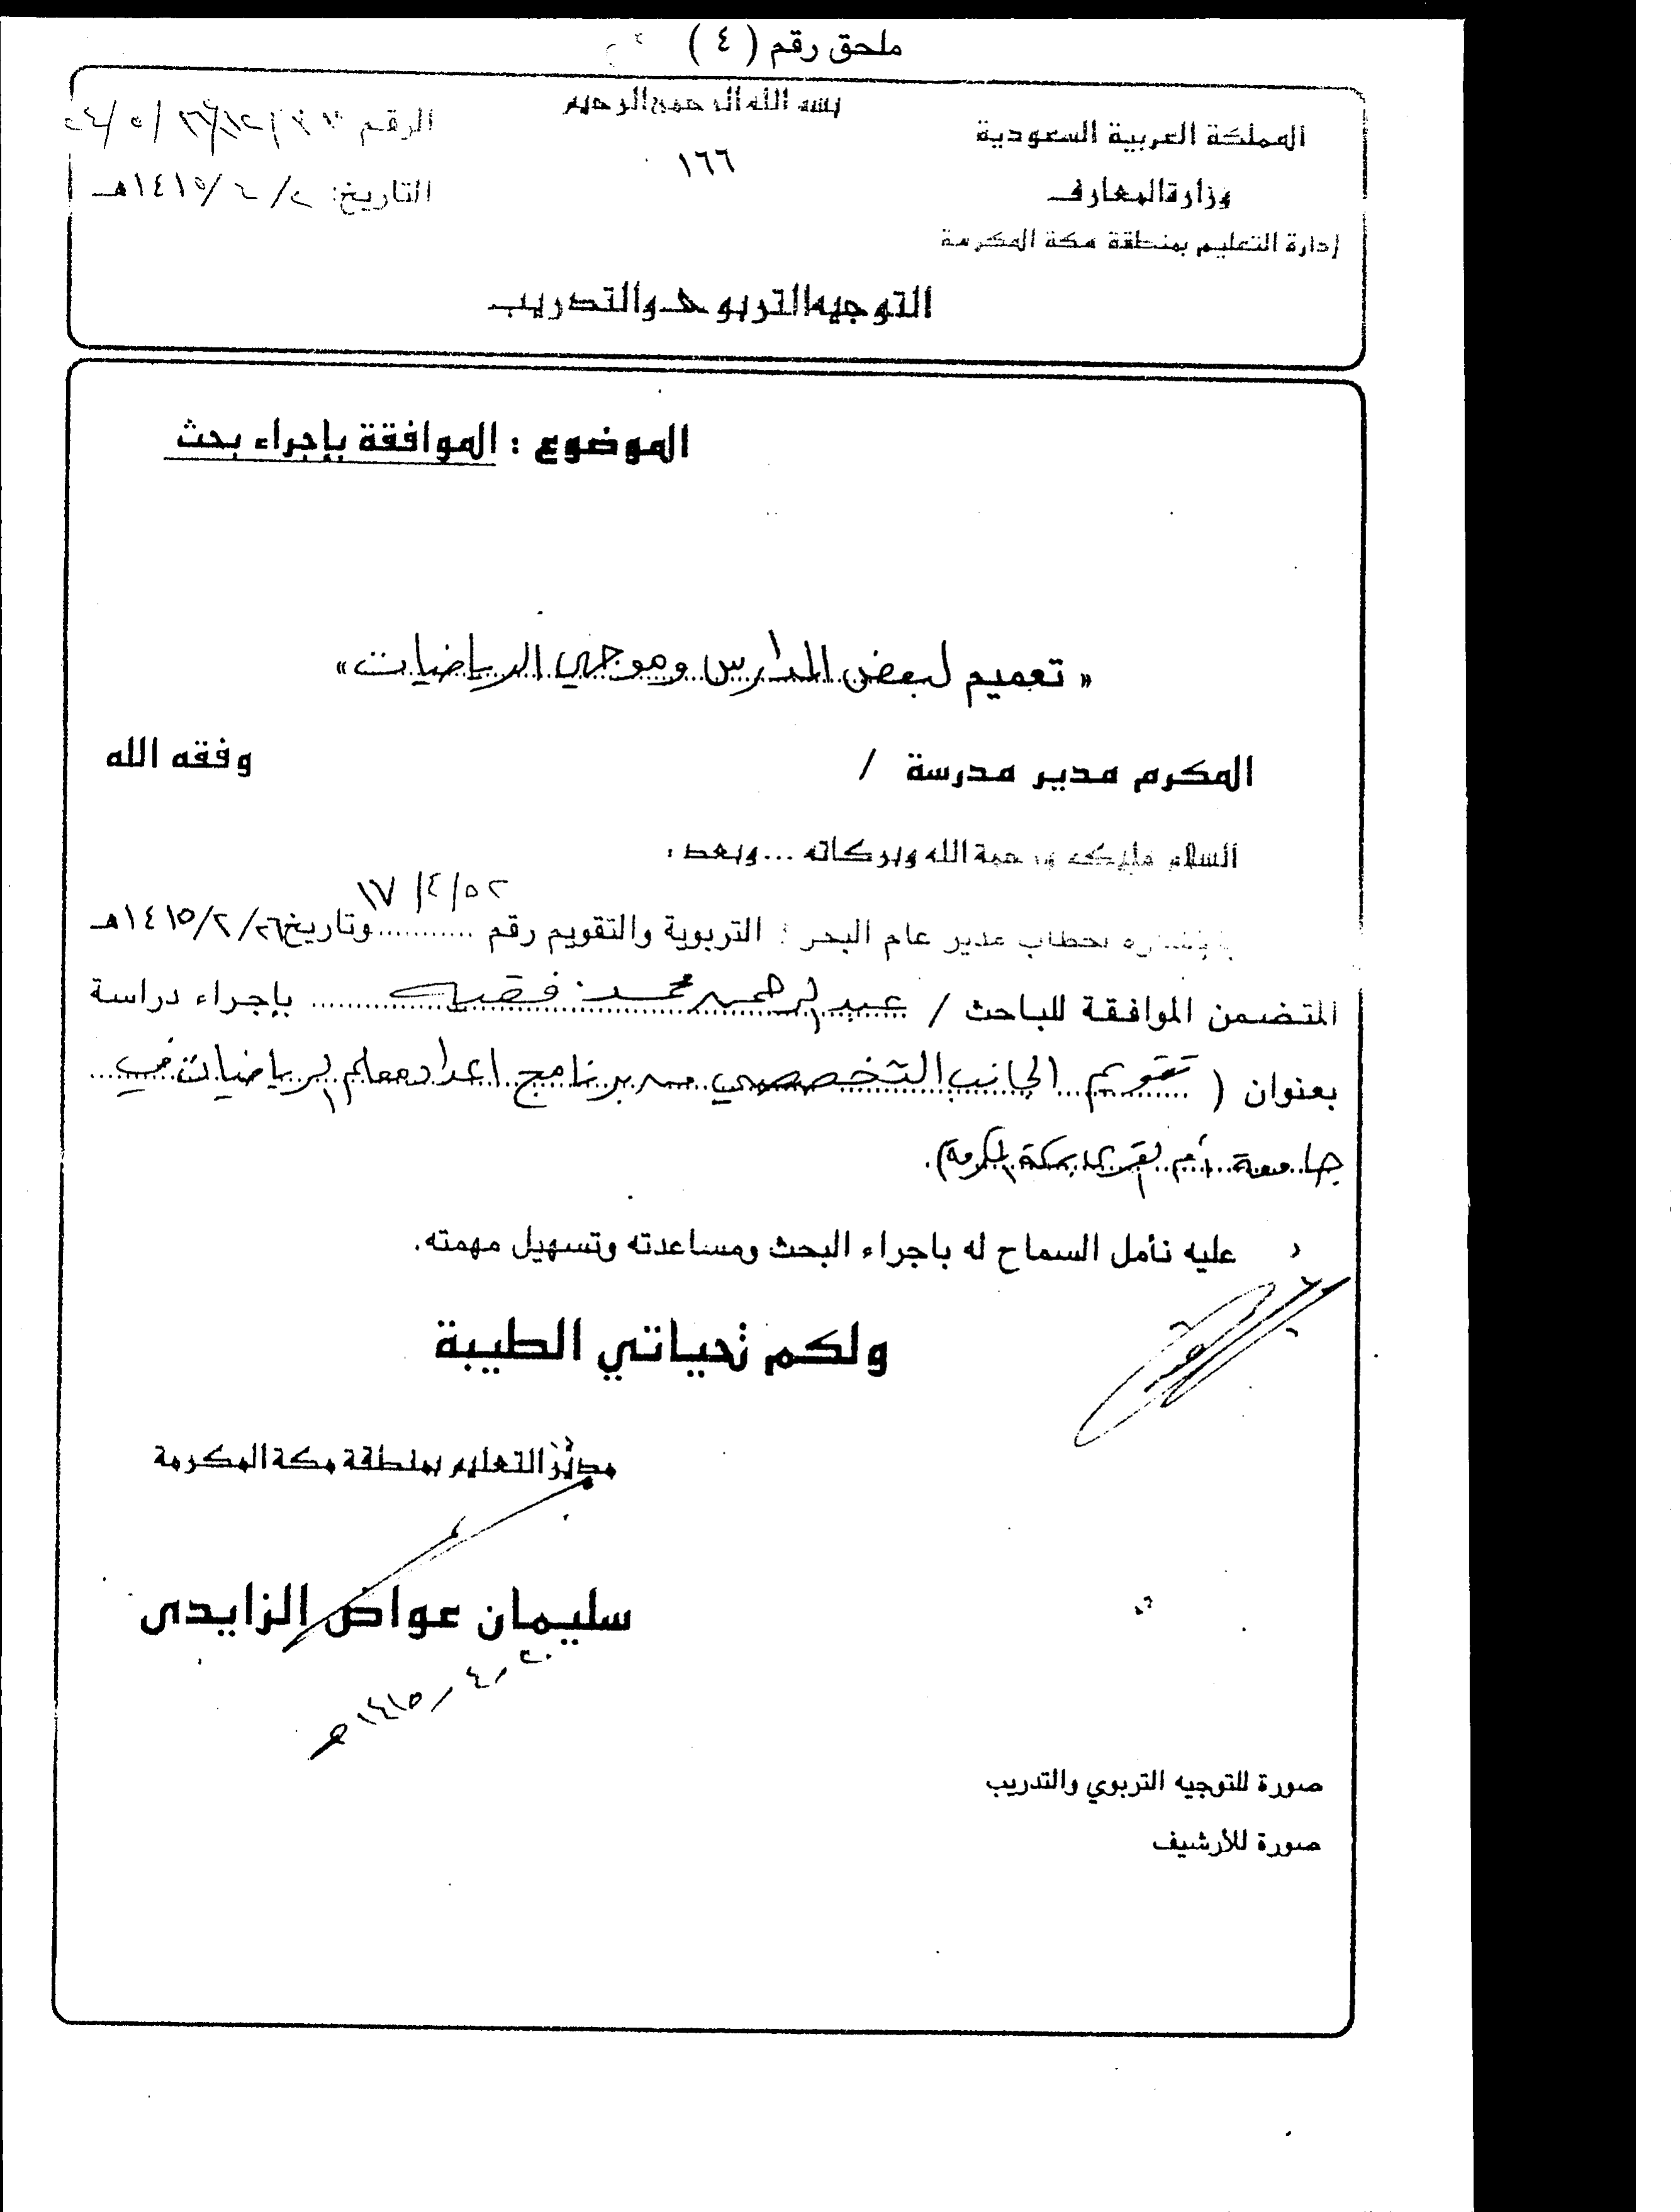 ملحق رقم ( ٤ )
بسم الله الرحمن الرحيم
١٦٦
المملكة العربية السعودية
وزارة المعارف
إدارة التعليم بمنطقة مكة المكرمة
الرقم
التاريخ: / / ١٤١٥هـ
التوجيه التربوي والتدريب
الموضوع : الموافقة بإجراء بحث
« تعميم لبعض المدارس وموجهي الرياضيات »
المكرم مدير مدرسة / وفقه الله
السلام عليكم ورحمة الله وبركاته ... وبعد :
١٧/٤/٥٢
خطاب مدير عام البحوث التربوية والتقويم رقم ........... وتاريخ ٢٦/٢/١٤١٥هـ
المتضمن الموافقة للباحث / عبد الرحمن محمد فقيه ......... بإجراء دراسة
بعنوان ( تقويم الجانب التخصصي من برنامج اعداد معلم الرياضيات في
جامعة أم القرى بمكة المكرمة).
عليه نأمل السماح له باجراء البحث ومساعدته وتسهيل مهمته.
ولكم تحياتي الطيبة
مدير التعليم بمنطقة مكة المكرمة
سليمان عواض الزايدى
٢٠ / ٤ / ١٤١٥ هـ
صورة للتوجيه التربوي والتدريب
صورة للأرشيف